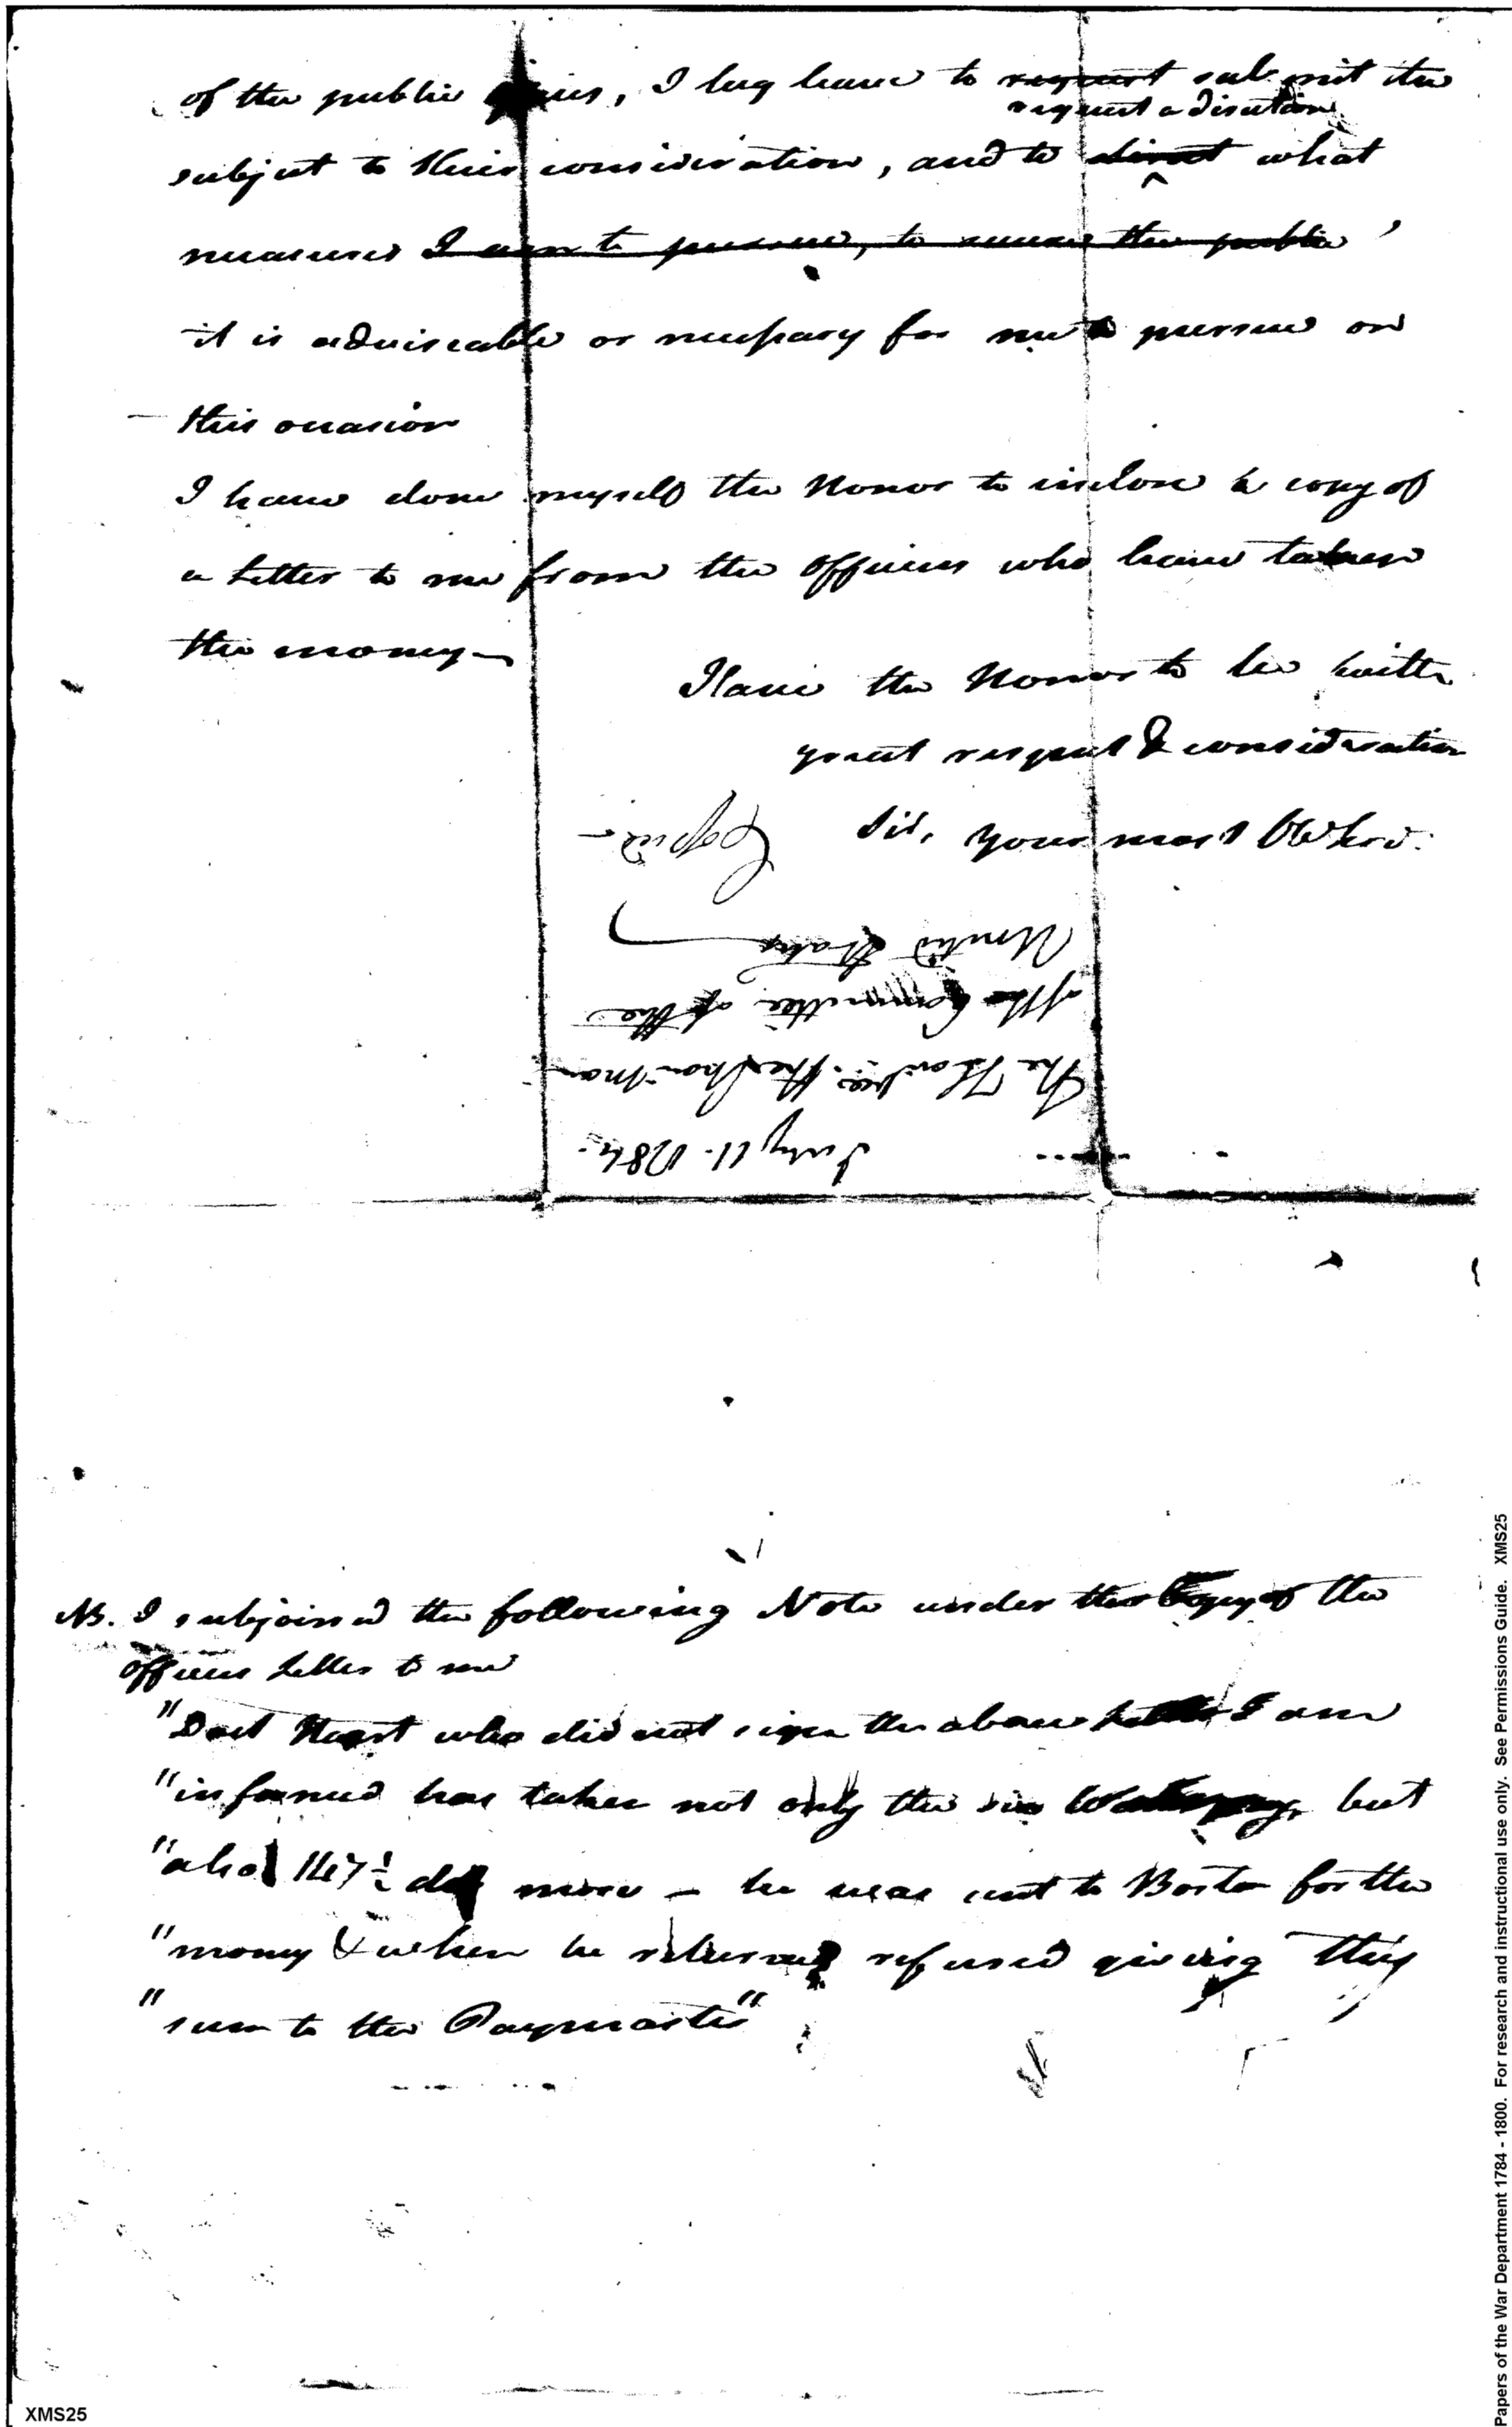 of the public , I beg leave to request submit the
request a direction
subject to their consideration, and to direct what
measures I am to pursue, to secure the public
it is adviseable or necessary for me to pursue on
this occasion
I have done myself the Honor to inclose a copy of
a Letter to me from the officers who have taken
the money—
I have the Honor to be with
great respect & consideration
Sir, your most Obt
Copied—
United States
of the Committee of the
The Honble. the Chairman
July 11. 1784.
NB. I subjoined the following Note under the Copy of the
officers Letter to me
"Doct Hart who did not sign the above Letter I am
"informed has taken not only the six but
"also 1167½ more — he was sent to Boston for the
"money & when he returned refused giving this
"sum to the Paymaster"
XMS25
Papers of the War Department 1784 - 1800. For research and instructional use only. See Permissions Guide. XMS25